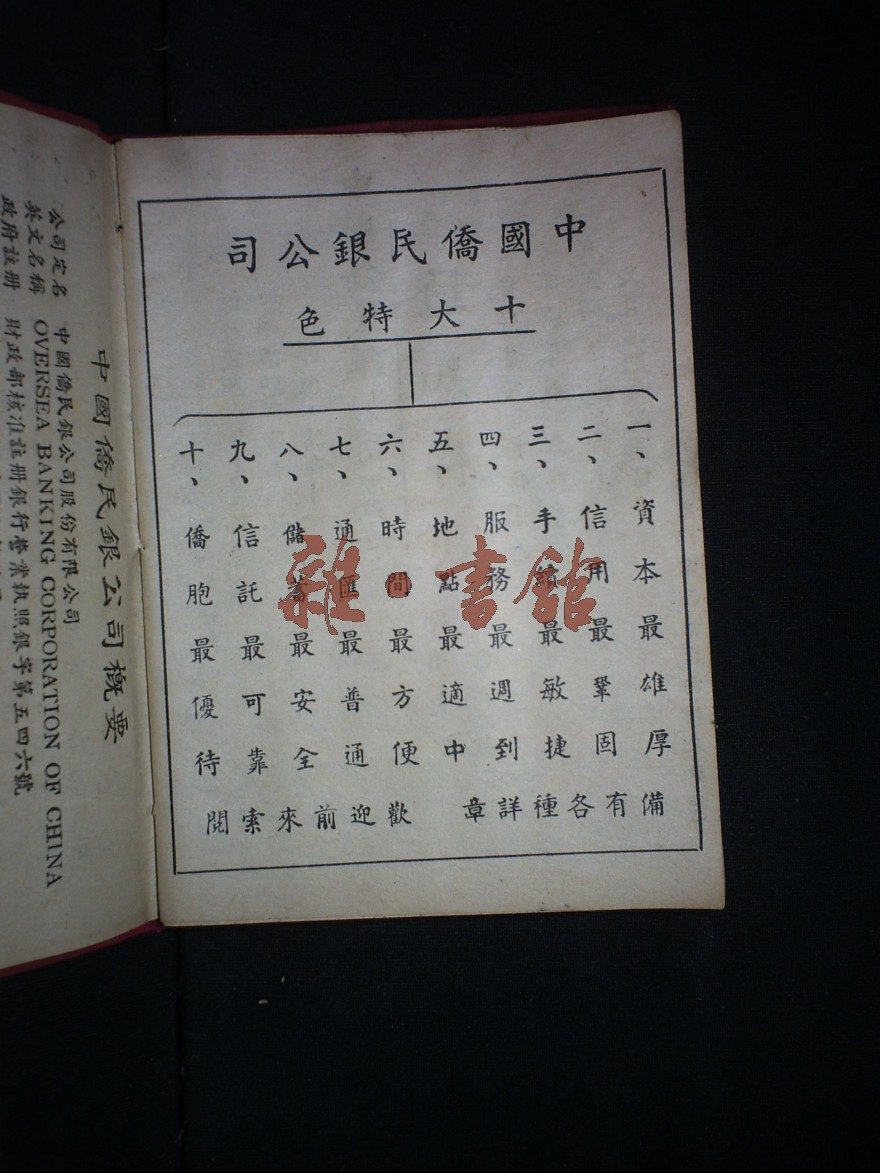 中國僑民銀公司
十大特色
一、資本最雄厚
二、信用最鞏固
三、手續最敏捷
四、服務最週到
五、地點最適中
六、時間最方便
七、通匯最普通
八、儲蓄最安全
九、信託最可靠
十、僑胞最優待
備有各種詳章
歡迎前來索閱
雜·書館
中國僑民銀公司概要
公司定名 中國僑民銀公司股份有限公司
英文名稱 OVERSEA BANKING CORPORATION OF CHINA
政府註册 財政部核准註册銀行營業執照銀字第五四六號